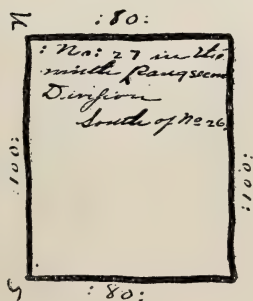 N
:80:
: No: 27 in the
ninth Rang second
Division
South of No 26
:100:
:100:
S
:80: